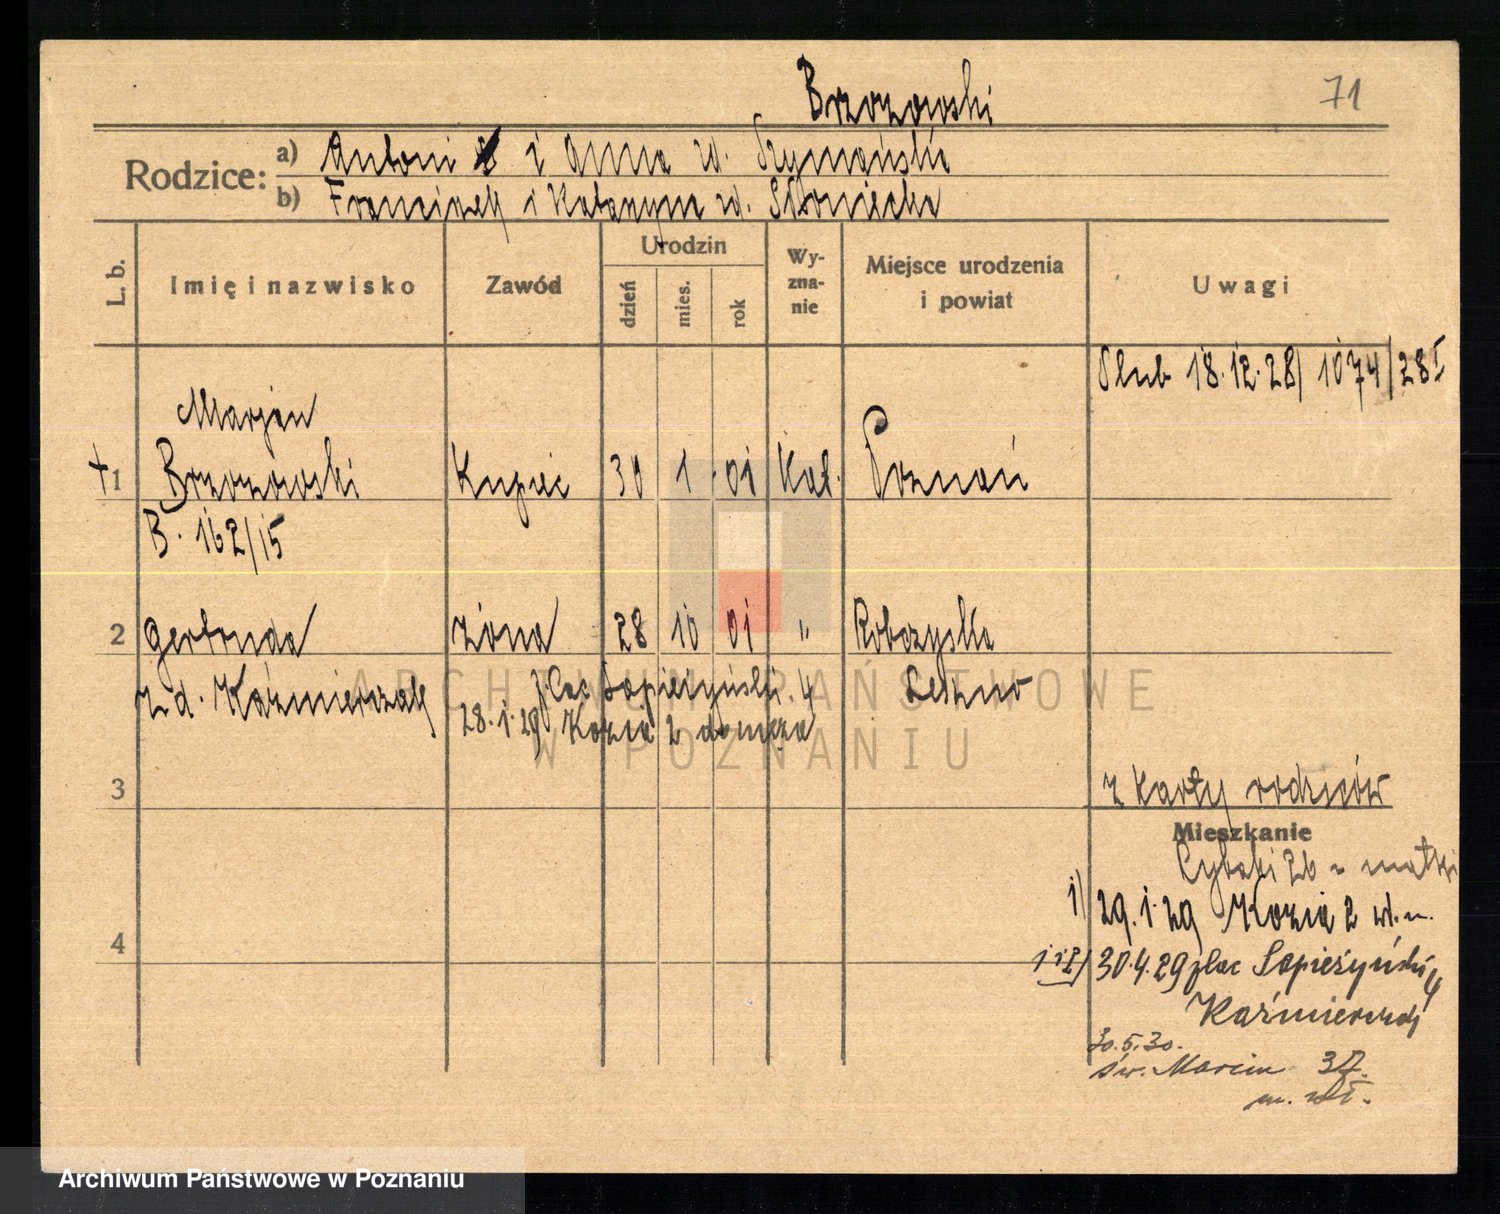 Brzozowski
71
Rodzice: a) Antoni i Anna zd. Szymańska
b) Franciszek i Katarzyna zd. Słoniecka
L. b.
Imię i nazwisko
Zawód
Urodzin
dzień
mies.
rok
Wy-
zna-
nie
Miejsce urodzenia
i powiat
Uwagi
Ślub 18.12.28/1074/28 I
Marjan
+1 Brzozowski Kupiec 30 1 01 Kat. Poznań
B. 162/15
2 Gertruda żona 28 10 01 " Robczysko
z d. Kaźmierczak Plac Sapieżyński 4 Leszno
28.1.29 Kozia 2 do męża
ARCHIWUM PAŃSTWOWE
W POZNANIU
3
z karty rodziców
Mieszkanie
Rybaki 26 u matki
1) 29.1.29 Kozia 2 wł. m.
4
1 i 2) 30.4.29 plac Sapieżyński 4
Kaźmierczak
30.5.30.
św. Marcin 37.
m. wł.
Archiwum Państwowe w Poznaniu